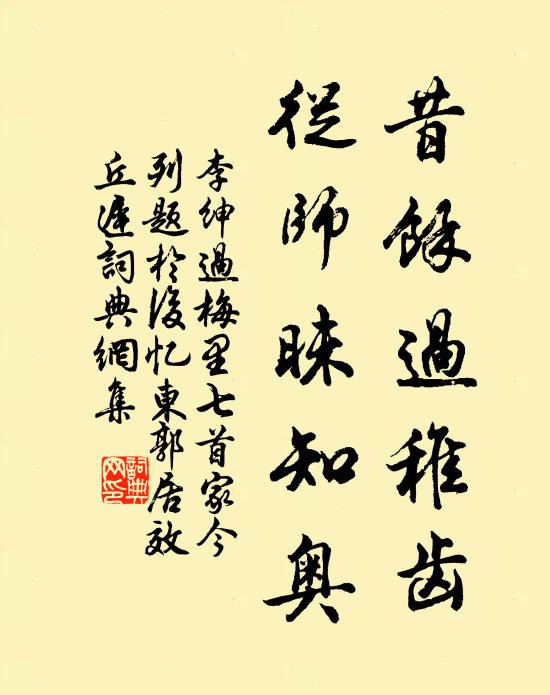 昔餘過稚齿
從師昧知奥
李紳過梅里七首家今
列題於後忆東郭居效
丘遲詞典網集
詞典
网印